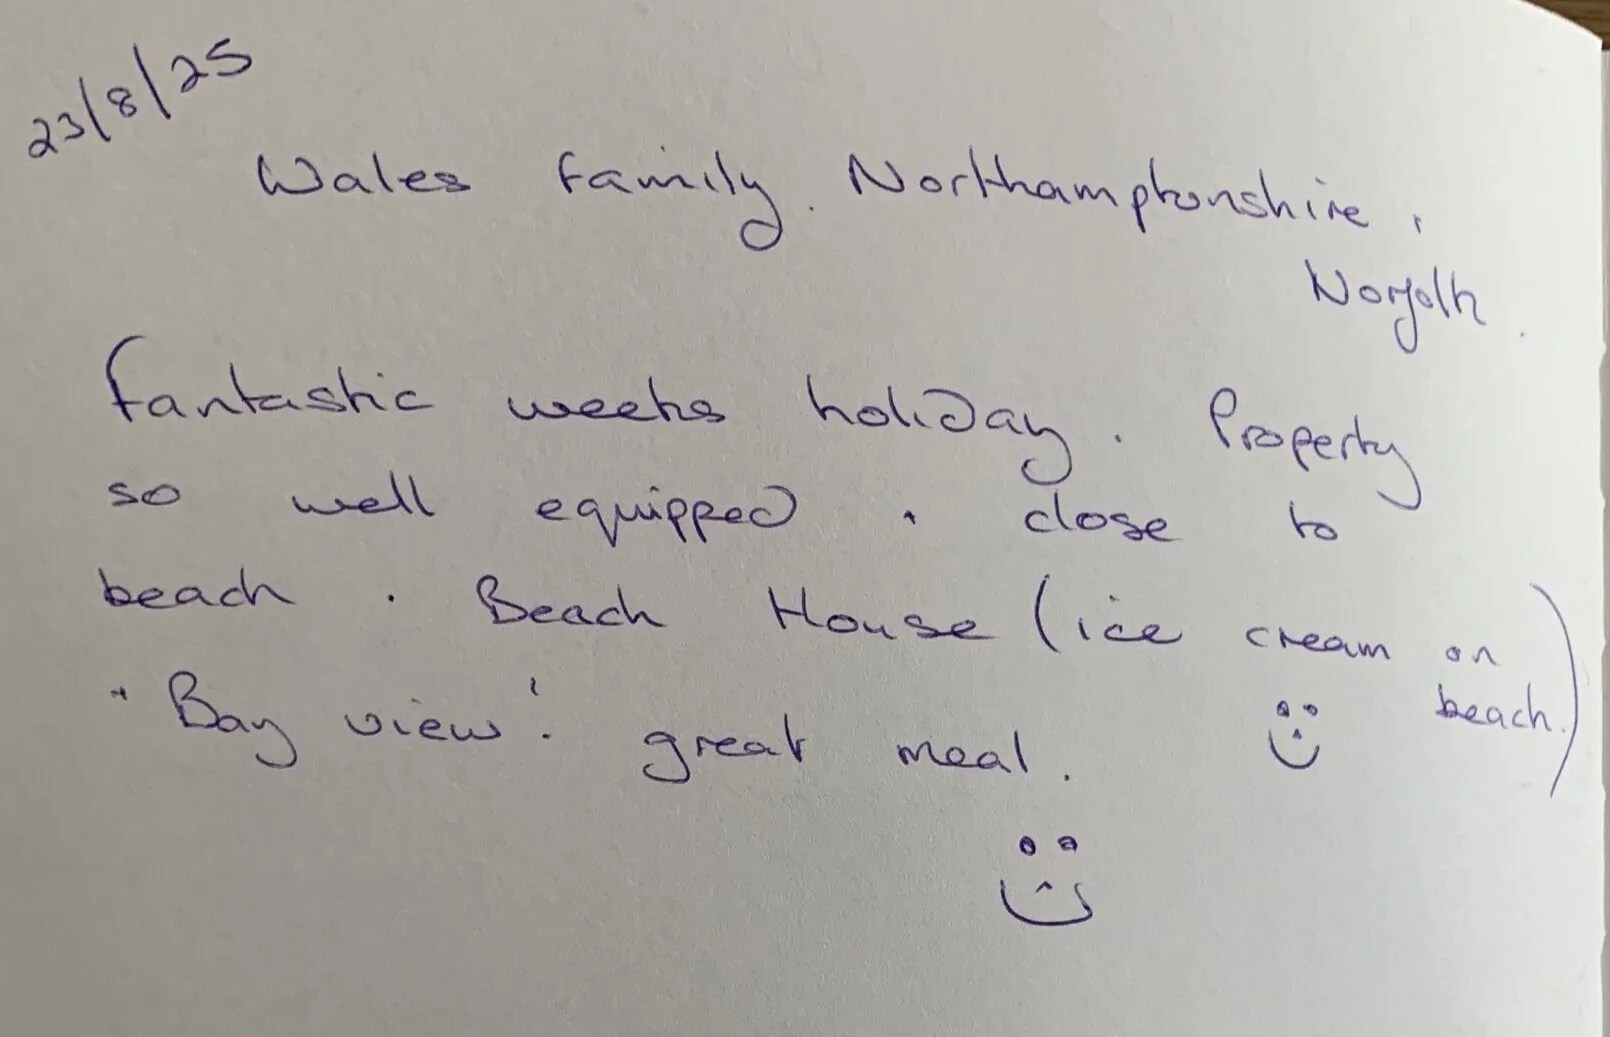 23/8/25
Wales family. Northamptonshire,
Norfolk.
Fantastic weeks holiday. Property
so well equipped. close to
beach. Beach House (ice cream on
beach.)
"Bay view'. great meal.